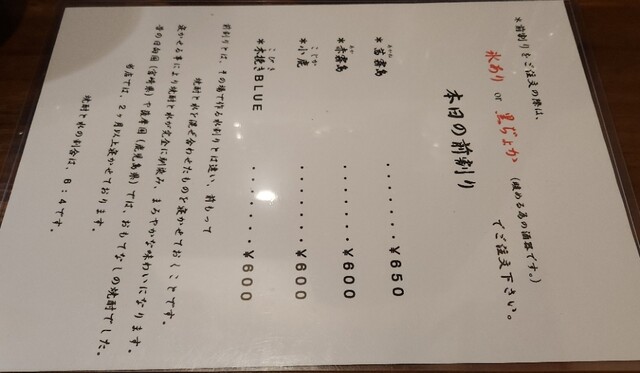 *前割りをご注文の際は、
氷あり or 黒ぢょか (暖める為の酒器です。)
でご注文下さい。
本日の前割り
あかね
*茜霧島 ・・・・・・・・¥650
あか
*赤霧島 ・・・・・・・・¥600
こじか
*小鹿 ・・・・・・・・¥600
こびき
*木挽きBLUE ・・・・・・・・¥600
前割りとは、その場で作る水割りとは違い、前もって
焼酎と水を混ぜ合わせたものを寝かせておくことです。
寝かせる事により焼酎と水が完全に馴染み、まろやかな味わいになります。
昔の日向国(宮崎県)や薩摩国(鹿児島県)では、おもてなしの焼酎でした。
当店では、2ヶ月以上寝かせております。
焼酎と水の割合は、8:4です。